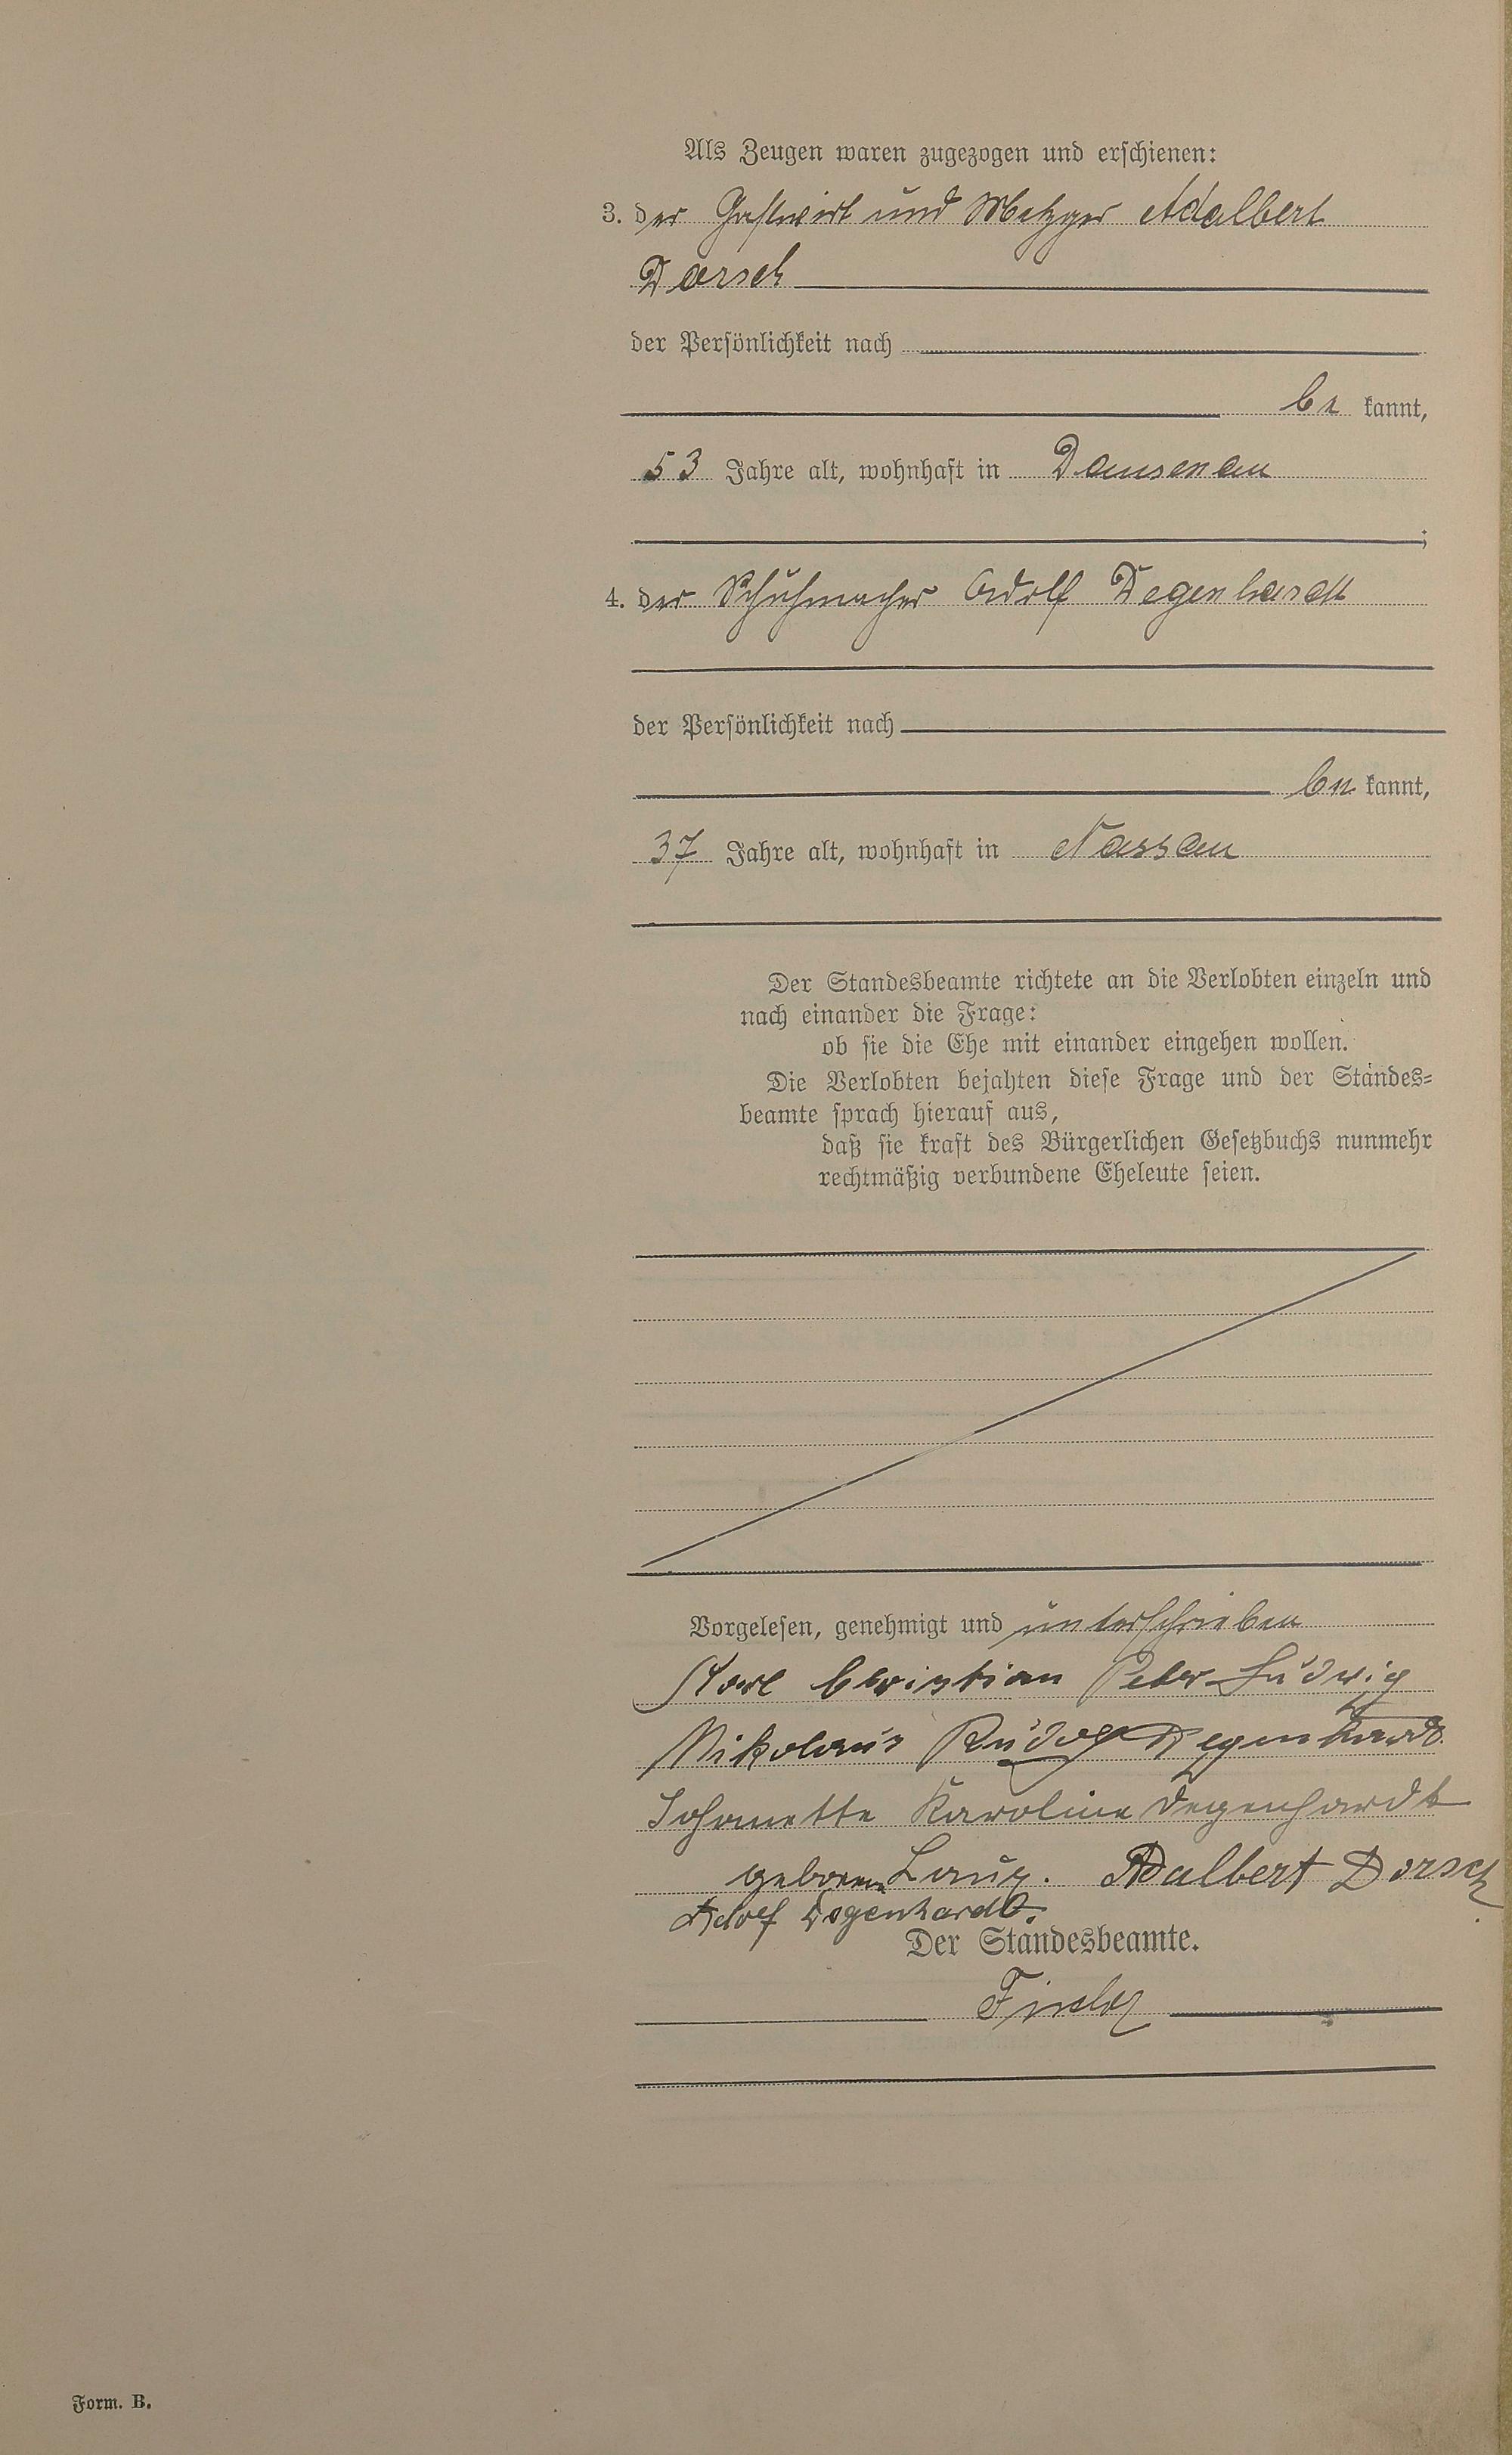 Als Zeugen waren zugezogen und erschienen:
3. der Gastwirt und Metzger Adalbert
Dorsch
der Persönlichkeit nach
be kannt,
53 Jahre alt, wohnhaft in Dausenau
;
4. der Schuhmacher Adolf Degenhardt
der Persönlichkeit nach
be kannt,
37 Jahre alt, wohnhaft in Nassau
Der Standesbeamte richtete an die Verlobten einzeln und
nach einander die Frage:
ob sie die Ehe mit einander eingehen wollen.
Die Verlobten bejahten diese Frage und der Standes=
beamte sprach hierauf aus,
daß sie kraft des Bürgerlichen Gesetzbuchs nunmehr
rechtmäßig verbundene Eheleute seien.
Vorgelesen, genehmigt und unterschrieben
Karl Christian Peter Ludwig
Nikolaus Rudolf Degenhardt
Johanette Karoline Degenhardt
geborene Adalbert Dorsch
Adolf Degenhardt.
Der Standesbeamte.
Form. B.